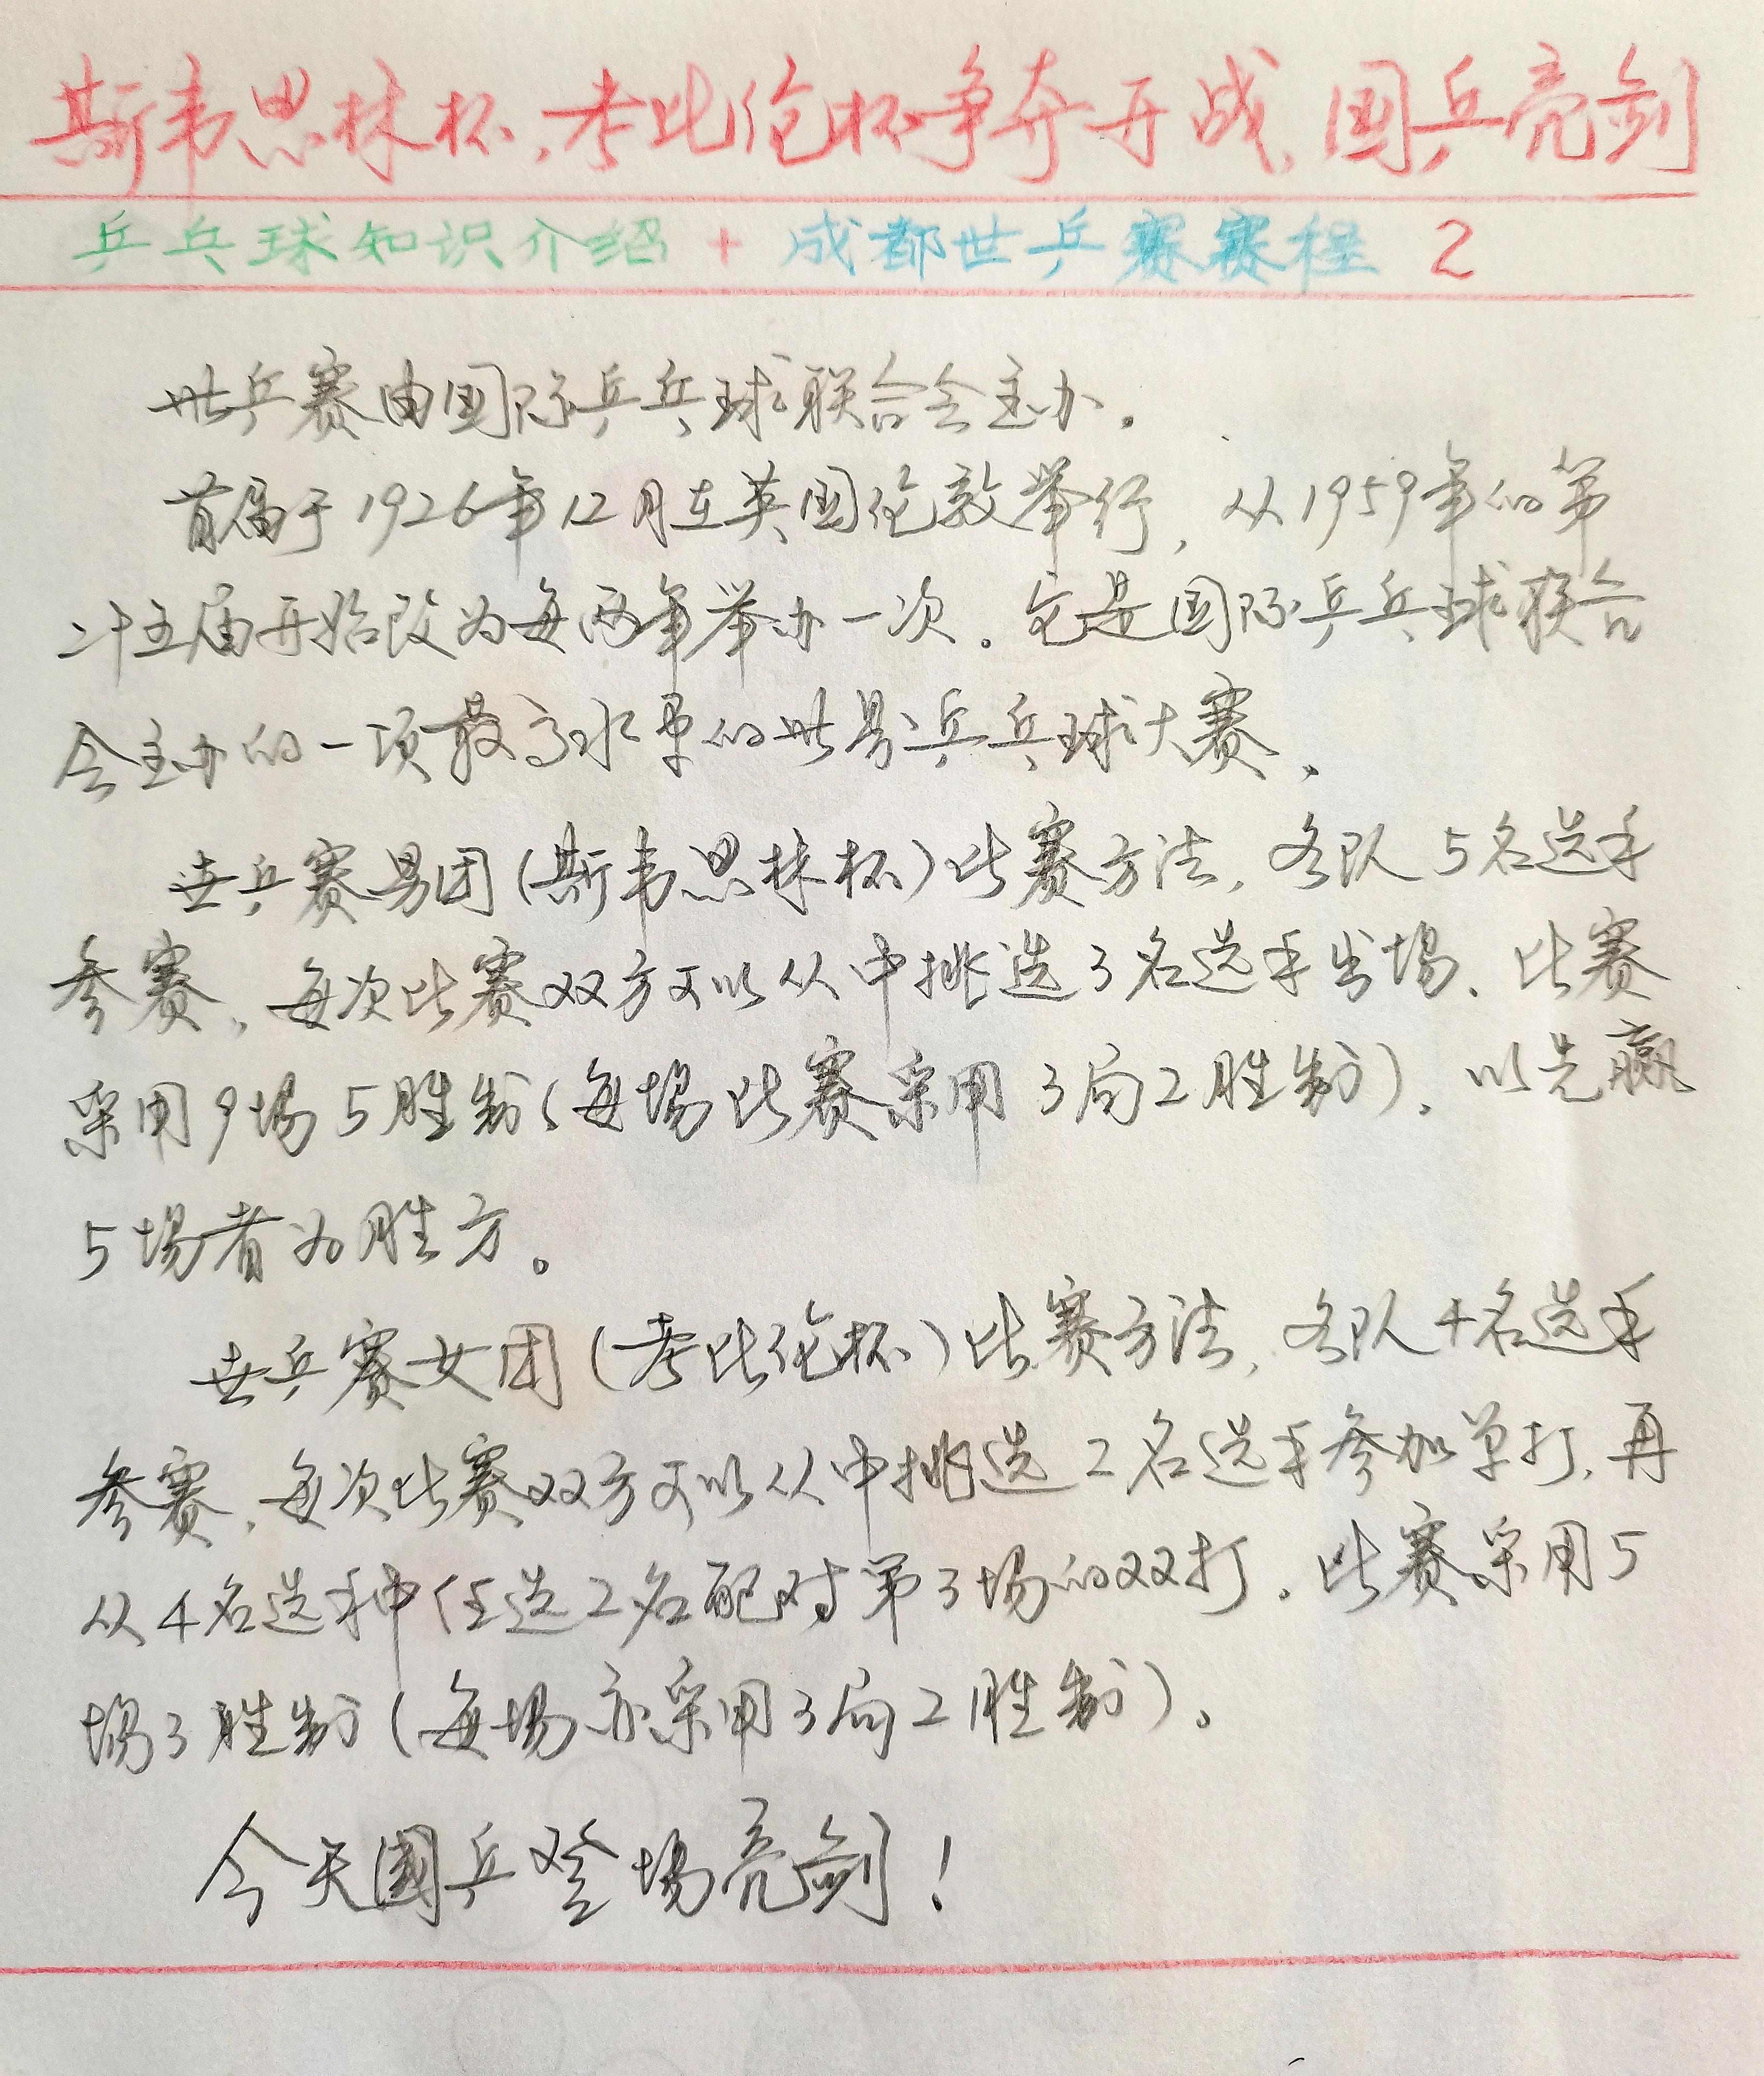 斯韦思林杯、考比伦杯争夺开战,国乒亮剑
乒乓球知识介绍 + 成都世乒赛赛程 2
世乒赛由国际乒乓球联合会主办.
首届于1926年12月在英国伦敦举行,从1959年的第
二十五届开始改为每两年举办一次。它是国际乒乓球联合
会主办的一项最高水平的世界乒乓球大赛.
世乒赛男团(斯韦思林杯)比赛方法,各队5名选手
参赛,每次比赛双方可以从中挑选3名选手出场.比赛
采用9场5胜制(每场比赛采用3局2胜制).以先赢
5场者为胜方。
世乒赛女团(考比伦杯)比赛方法,各队4名选手
参赛,每次比赛双方可以从中挑选2名选手参加单打,再
从4名选手中任选2名配对第3场的双打.比赛采用5
场3胜制(每场亦采用3局2胜制)。
今天國乒登场亮剑!